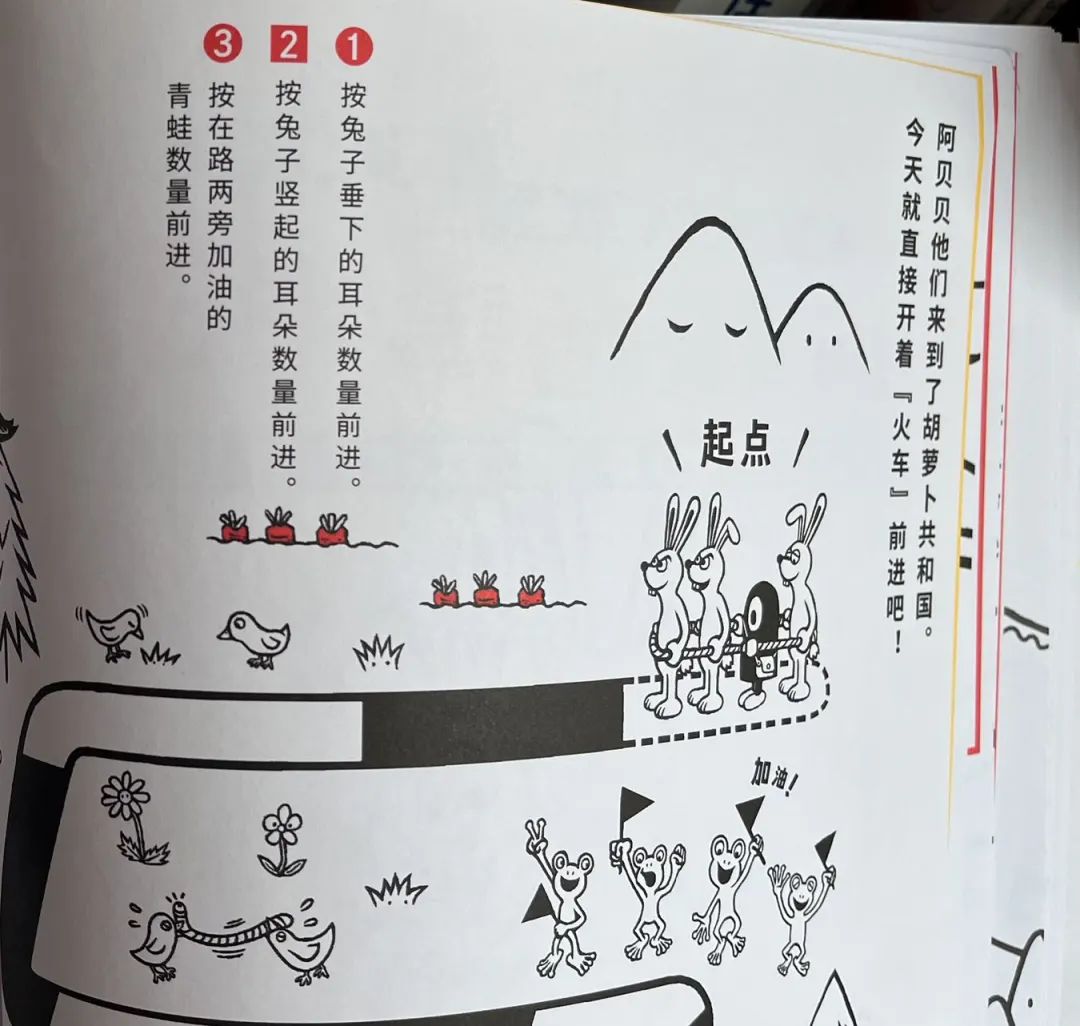 阿贝贝他们来到了胡萝卜共和国。
今天就直接开着『火车』前进吧！
起点
1
按兔子垂下的耳朵数量前进。
2
按兔子竖起的耳朵数量前进。
3
按在路两旁加油的
青蛙数量前进。
加油！